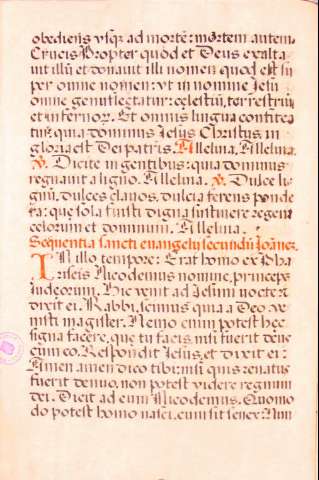 obediens usq; ad mortē: mortem autem
Crucis Propter quod et Deus exalta
uit illū et donauit illi nomen quod est su
per omne nomen: vt in nomine Jesu
omne genuflectatur: celestiū, terrestriū
et infernor. Et omnis lingua confitea
tur: quia dominus Jesus Christus in
gloria est Dei patris. Alleluia, Alleluia.
℣. Dicite in gentibus: quia dominus
regnauit a ligno. Alleluia. ℣. Dulce li
gnū, dulces clauos, dulcia ferens ponde
ra: que sola fuisti digna sustinere regem
celorum et dominum. Alleluia.
Sequentia sancti euangelij secundū Joānez.
In illo tempore: Erat homo ex Pha
riseis Nicodemus nomine, princeps
Judeorum. Hic venit ad Jesum nocte: et
dixit ei. Rabbi, scimus quia a Deo ve
nisti magister. Nemo enim potest hec
signa facere, que tu facis, nisi fuerit deus
cum eo. Respondit Jesus, et dixit ei:
Amen amen dico tibi: nisi quis renatus
fuerit denuo, non potest videre regnum
dei. Dicit ad eum Nicodemus. Quomo
do potest homo nasci, cum sit senex: Nun